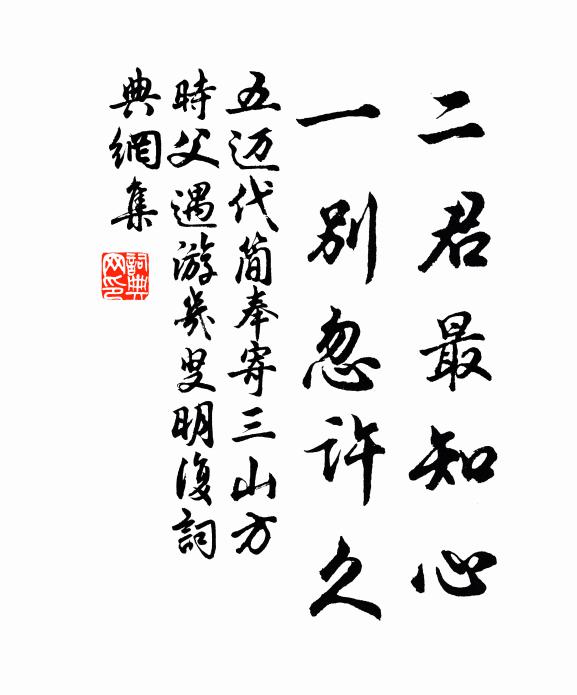 二君最知心
一别忽许久
五迈代简奉寄三山方
時父遇游幾叟明復詞
典網集
詞典
网印